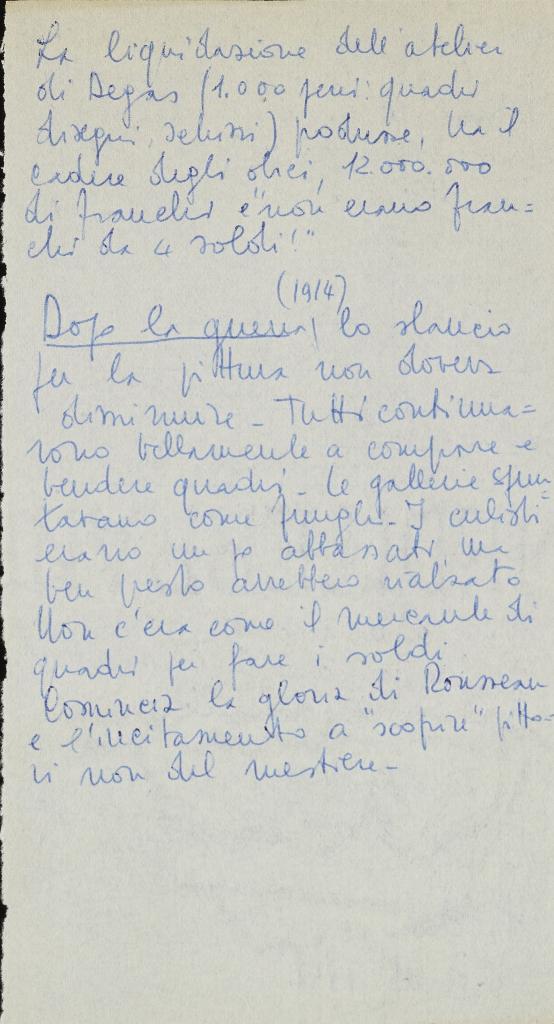 La liquidazione dell'atelier
di Degas (1.000 pezzi: quadri
disegni, schizzi) produsse, tra il
cadere degli obici, 12.000.000
di franchi e "non erano fran=
chi da 4 soldi!"
(1914)
Dopo la guerra, lo slancio
per la pittura non doveva
diminuire - Tutti continua=
rono bellamente a comprare e
vendere quadri - Le gallerie spun-
tavano come funghi - I cubisti
erano un po' abbassati, ma
ben presto avrebbero rialzato
Non c'era come il mercante di
quadri per fare i soldi
Comincia la gloria di Rousseau
e l'incitamento a "scoprire" pitto-
ri non del mestiere -